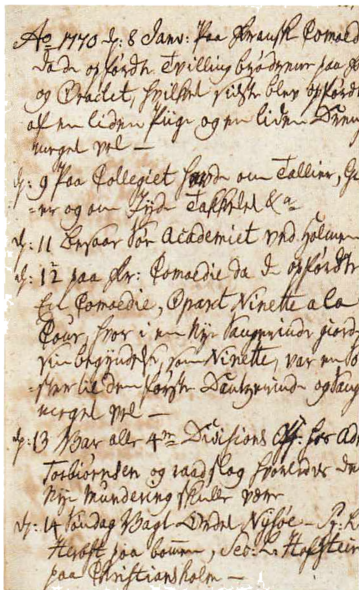 Ao 1770 d: 8 Janv: Paa fransk Comoed
da de opførdte Tvillingbrødrene paa
og Oraclet, hvilket sidste blev opført
af en liden Pige og en liden Dreng
meget vel —
d: 9 Paa Collegiet hørde om Tallier,
-er og om Jydse Takkelet &a
d: 11 besaae Søe Academiet ved Holmen
d: 12 paa fr: Comoedie da de opførdte
En Comoedie, Operaet Ninette a la
Cour, hvor i en Nye Sangerinde giorde
sin begyndelse, som Ninette, var en
-ster til den første Dantzerinde og sang
meget vel —
d: 13 Var alle 4re Divisions Off: hos Adm
Torbiørnsen og raadslog hvorledes den
Nye Mundering skulle være
d: 14 Søndag Vagt Nyhse
paa bommen,
paa Christiansholm —